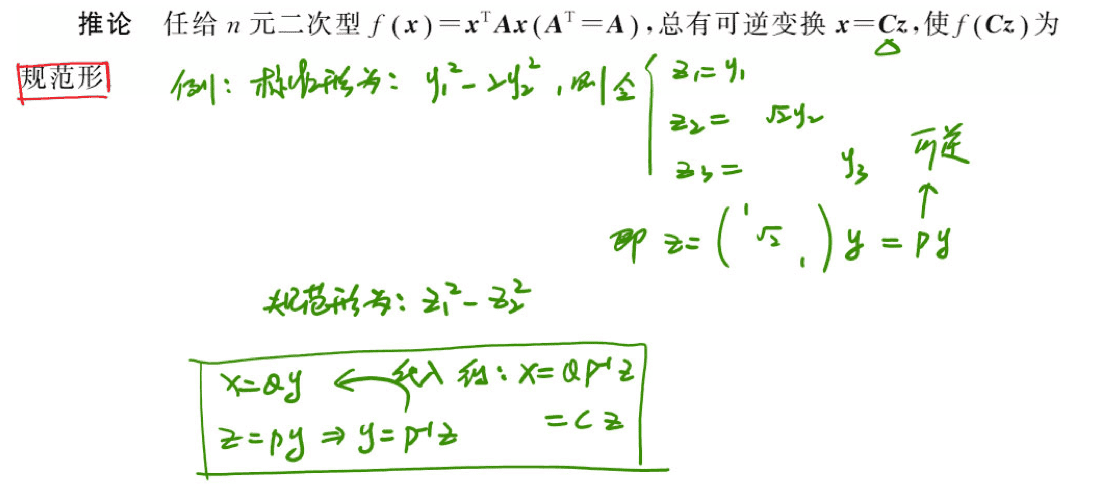 推论 任给 n 元二次型 f(x)=xᵀAx(Aᵀ=A),总有可逆变换 x=Cz,使f(Cz)为
规范形
例:标准形为: y₁²-2y₂²,则令 { z₁=y₁
z₂= √2y₂
z₃= y₃
可逆
即 z=(1 √2 1)y=Py
规范形为: z₁²-z₂²
x=Qy ← 代入 得: x=QP⁻¹z
z=Py⇒y=P⁻¹z =Cz